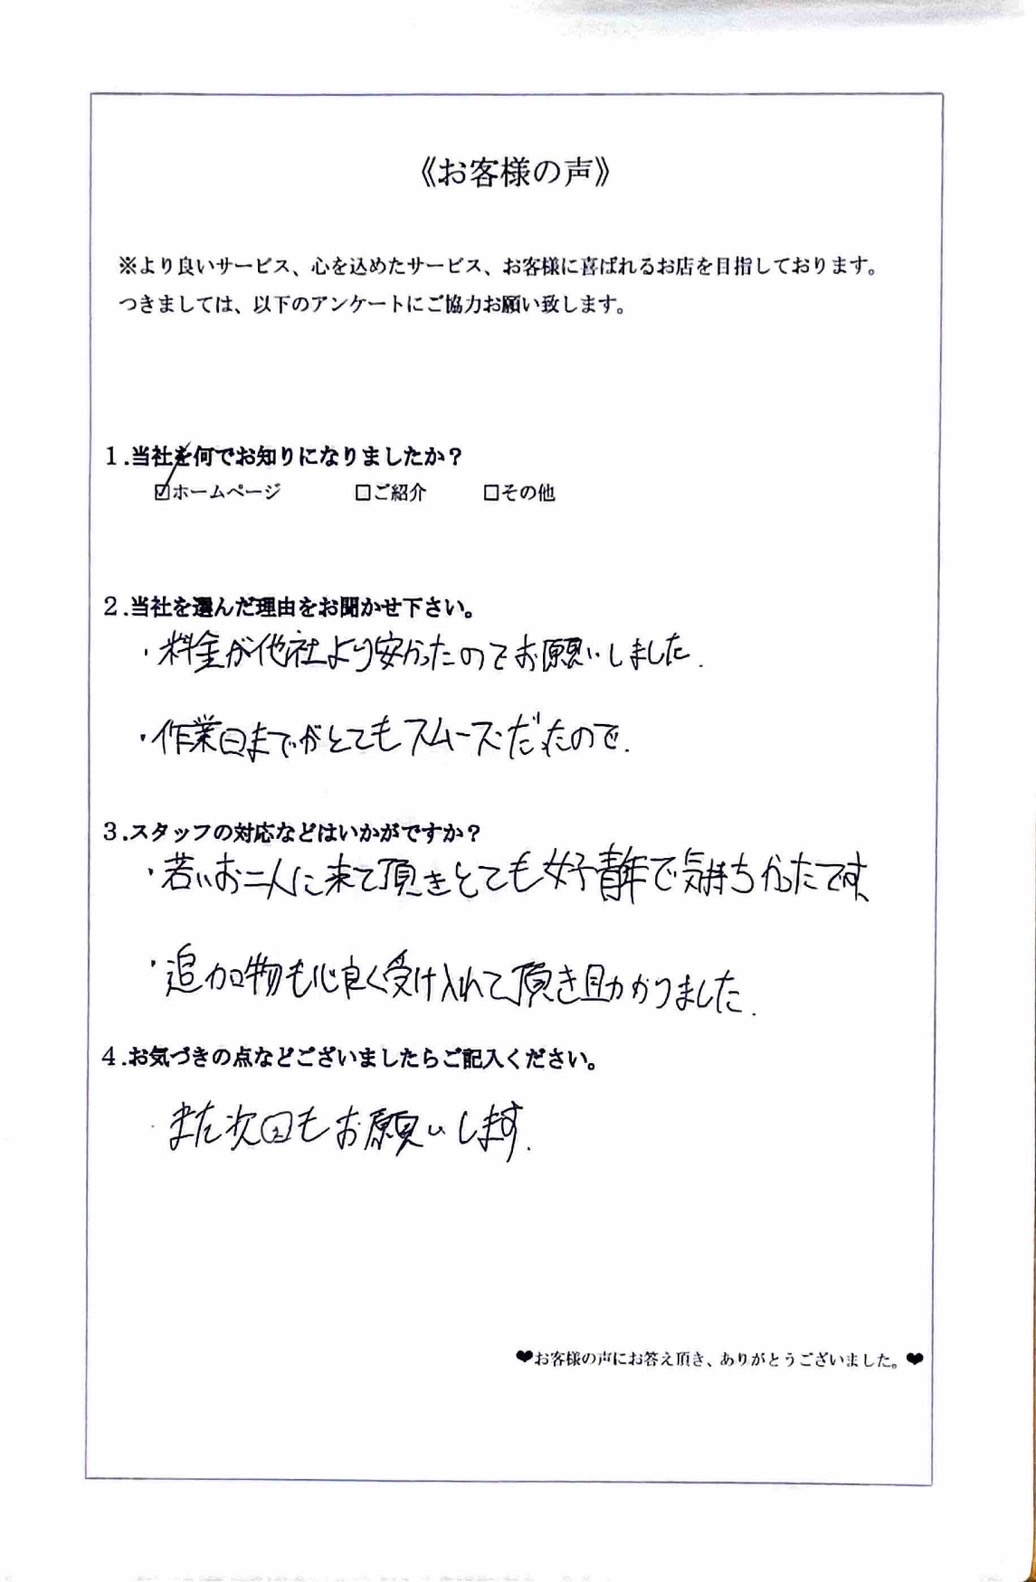 《お客様の声》
※より良いサービス、心を込めたサービス、お客様に喜ばれるお店を目指しております。
つきましては、以下のアンケートにご協力お願い致します。
1.当社を何でお知りになりましたか？
☑ホームページ □ご紹介 □その他
2.当社を選んだ理由をお聞かせ下さい。
・料金が他社より安かったのでお願いしました.
・作業日までがとてもスムーズだったので.
3.スタッフの対応などはいかがですか？
・若いお二人に来て頂きとても好青年で気持ちかったです、
・追加物も心良く受け入れて頂き助かりました.
4.お気づきの点などございましたらご記入ください。
・また次回もお願いします.
❤お客様の声にお答え頂き、ありがとうございました。❤